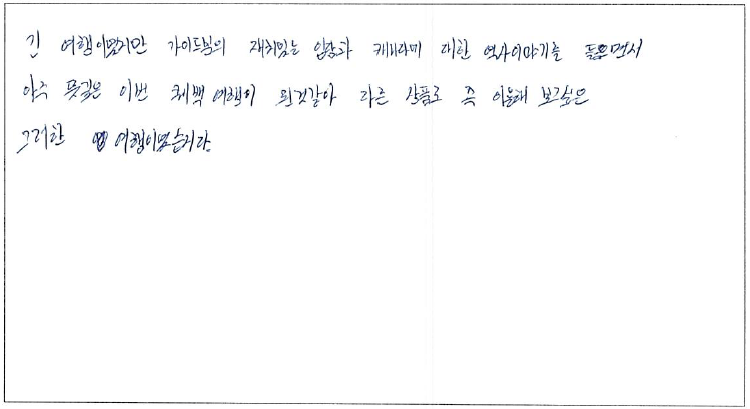 긴 여행이였지만 가이드분의 재치있는 입담과 캐나다에 대한 역사이야기를 들으면서
아주 뜻깊은 이번 퀘백 여행이 된것같아 다른 상품도 즉 이용해 보고싶은
그러한 여행이였습니다.